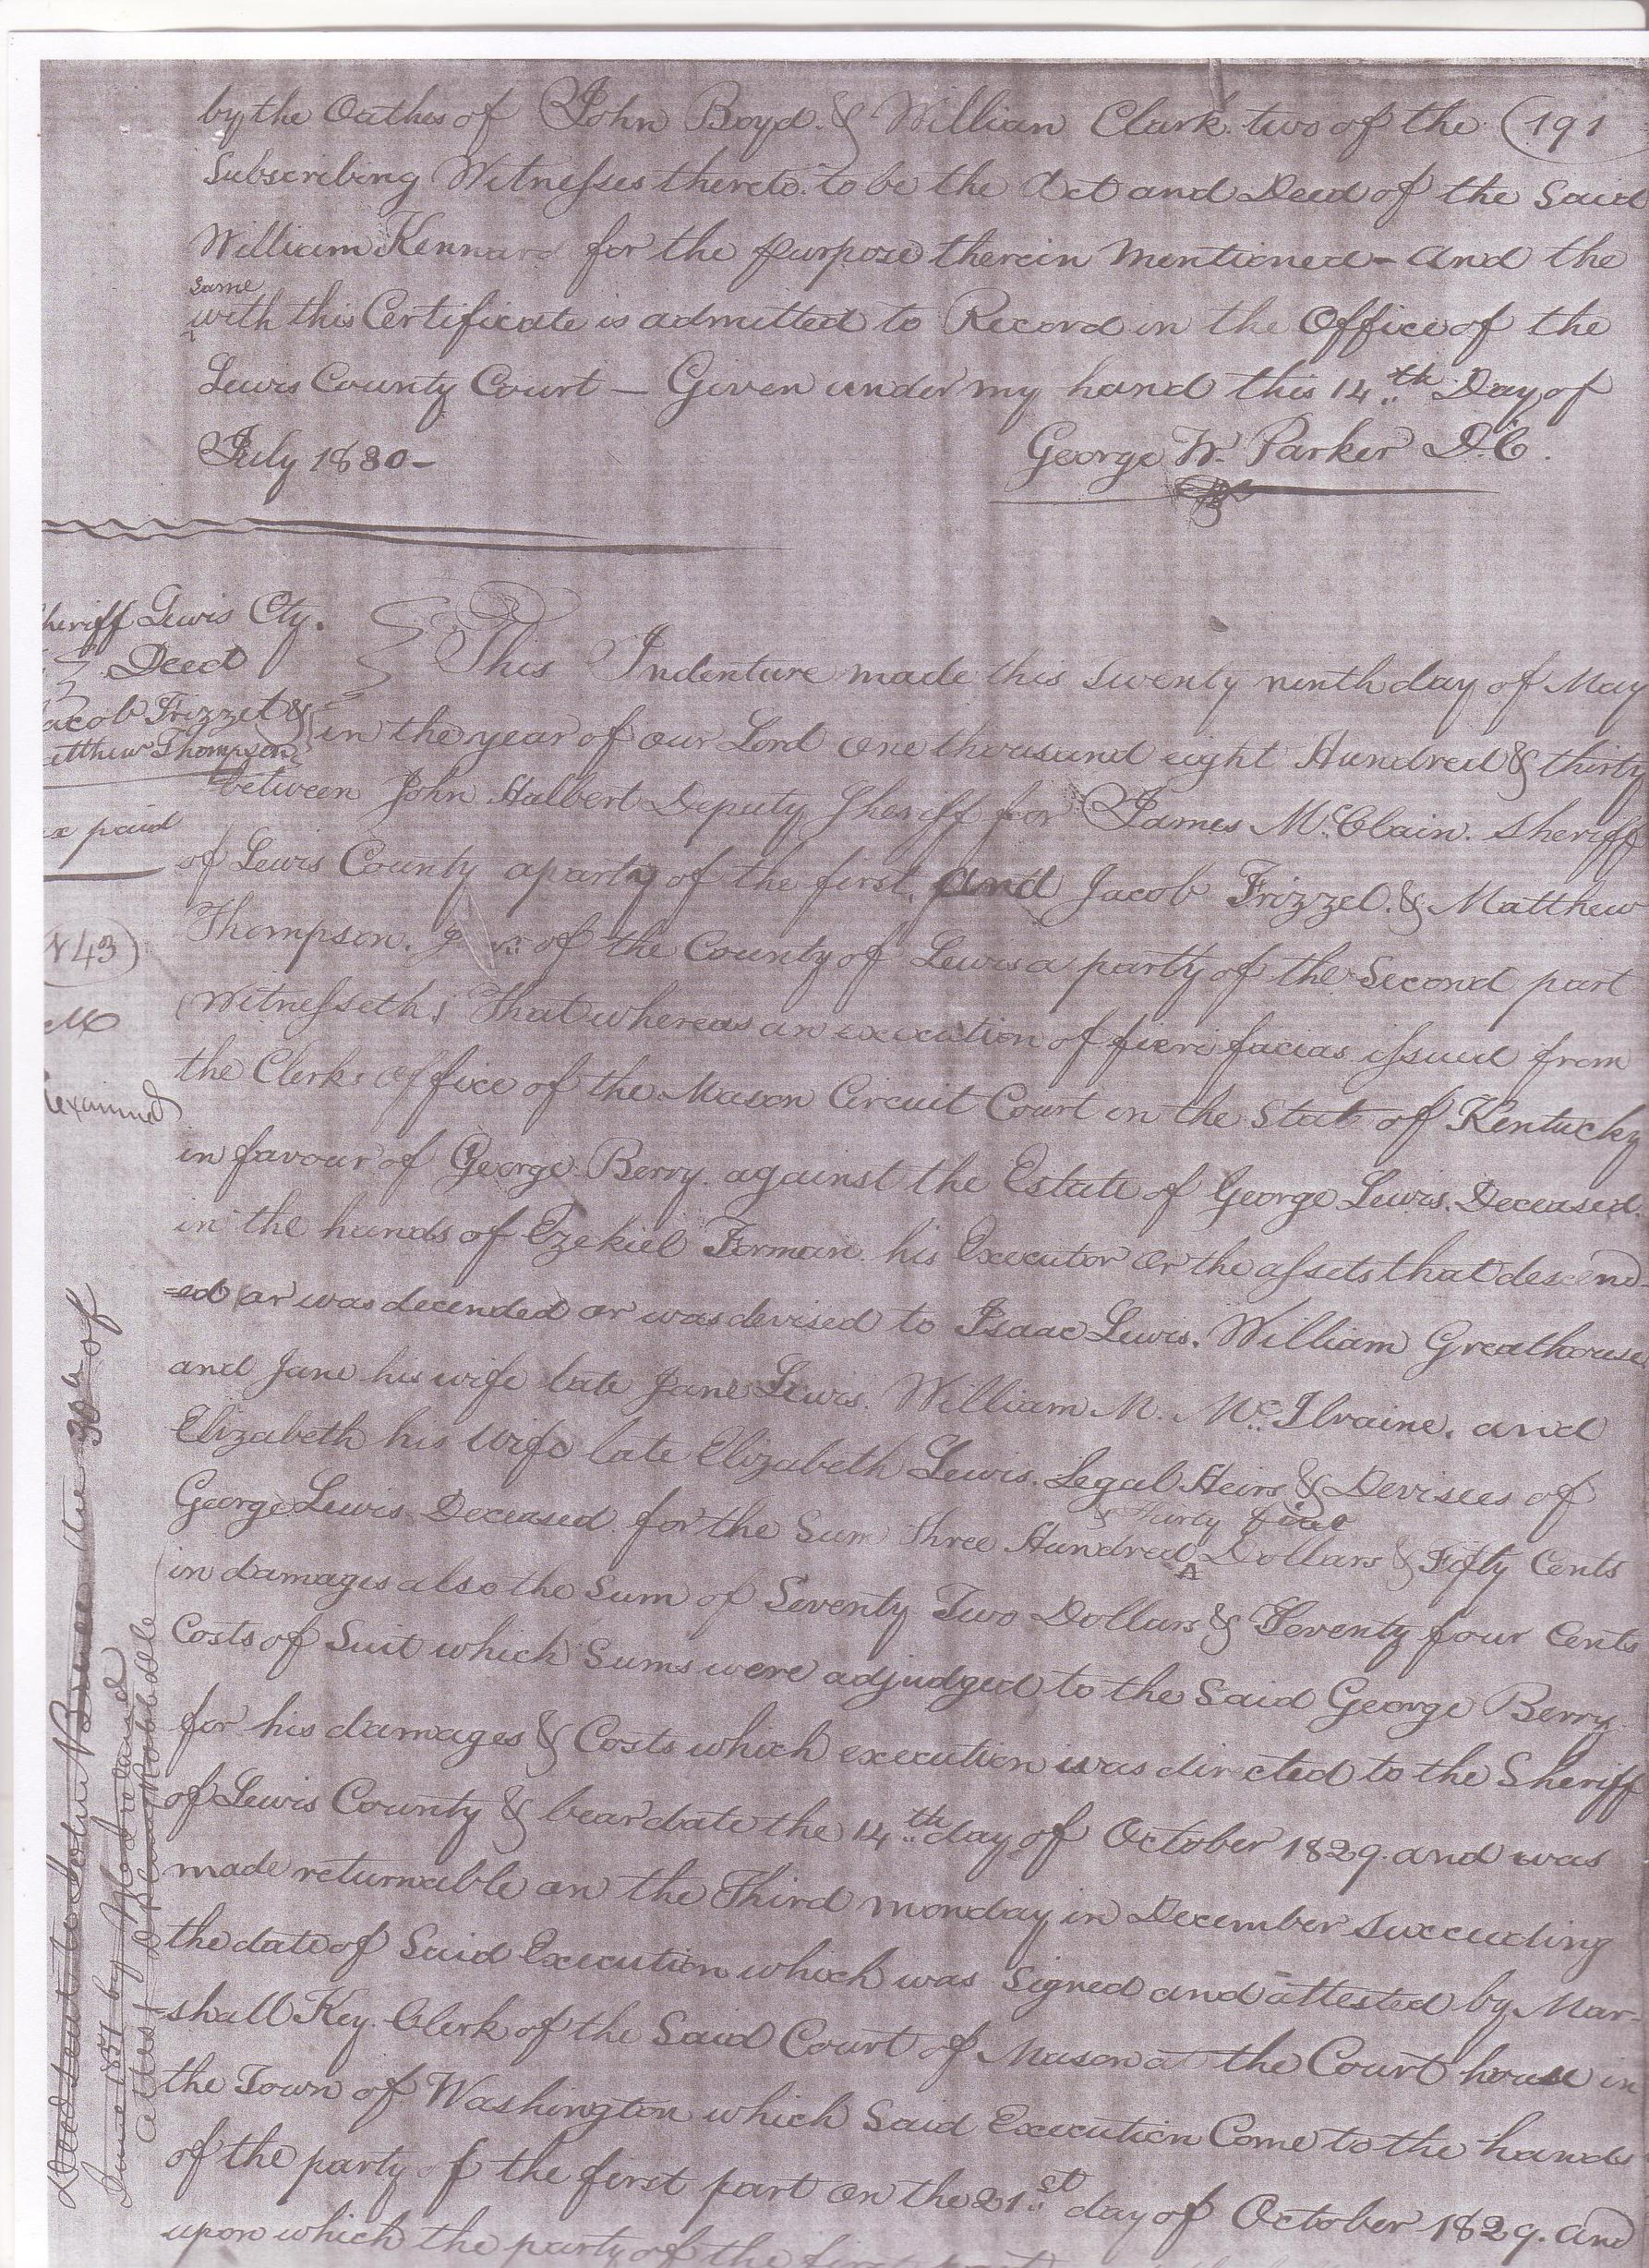 by the Oathes of John Boyd & William Clark two of the (191
Subscribing Witnesses thereto to be the Act and Deed of the Said
William Kennard for the purpose therein mentioned - and the
same
with this Certificate is admitted to Record in the Office of the
Lewis County Court — Given under my hand this 14th Day of
July 1830 -
George W. Parker D.C.
heriff Lewis Cty.
Deed
acob Frizzel &
atthew Thompson
x paid
143)
examined
This Indenture made this twenty ninth day of May
in the year of our Lord one thousand eight Hundred & thirty
between John Halbert Deputy Sheriff for James McClain. Sheriff
of Lewis County aparty of the first, and Jacob Frizzel. & Matthew
Thompson. of the County of Lewis a party of the Second part
Witnesseth; That whereas an execution of fieri facias issued from
the Clerks Office of the Mason Circuit Court in the State of Kentucky
in favour of George Berry. against the Estate of George Lewis. Deceased.
in the hands of Ezekiel Forman his Executor or the assets that descend
=ed or was decended or was devised to Isaac Lewis. William Greathouse
and Jane his wife late Jane Lewis. William M. McIlvaine. and
Elizabeth his Wife late Elizabeth Lewis. Legal Heirs & Devisees of
& Thirty five
George Lewis Deceased for the Sum Three Hundred Dollars & Fifty Cents
in damages also the Sum of Seventy Two Dollars & Seventy four Cents
Costs of Suit which Sums were adjudged to the Said George Berry.
for his damages & Costs which execution was directed to the Sheriff
of Lewis County & bear date the 14th day of October 1829. and was
made returnable on the Third monday in December succeeding
the date of Said Execution which was Signed and attested by Mar-
-shall Key. Clerk of the Said Court of Mason at the Court house in
the Town of Washington which Said Execution Come to the hands
of the party of the first part on the 21st day of October 1829. and
upon which the party of the first part
Deed sent to John Bruce the 30th of
June 1851 by
attest